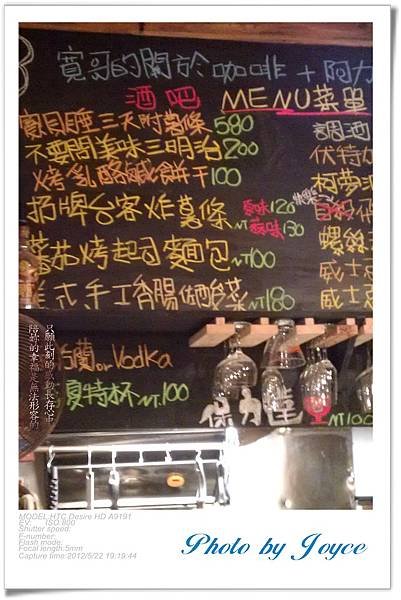 寬哥的關於咖啡+阿力
酒吧 MENU菜單
三天附薯條 580
不要問美味三明治 200
烤乳酪鹹餅干 100
招牌台客炸薯條 原味120
NT 辣味130
蕃茄烤起司麵包 NT100
美式手工香腸佐酸菜 NT180
調酒
伏特加
柯夢
螺絲
威士忌
威士忌
蘭or Vodka
夏特杯 NT100
保力達 NT100
只願此刻的感動長存心中
陪妳的幸福是無法形容的
MODEL:HTC Desire HD A9191
EV: ISO:800
Shutter speed:
F-number:
Flash mode:
Focal length:5mm
Capture time:2012/5/22 19:19:44
Photo by Joyce